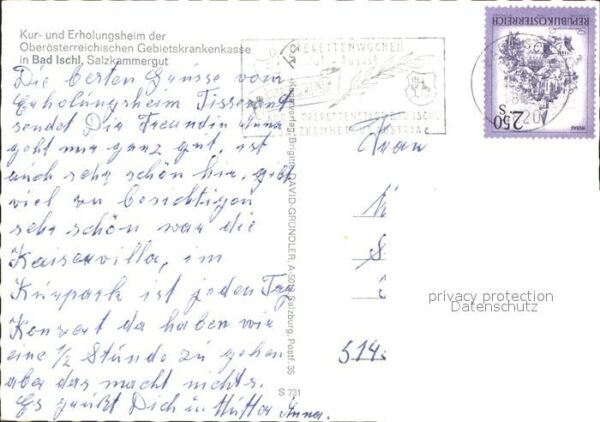 Kur- und Erholungsheim der
Oberösterreichischen Gebietskrankenkasse
in Bad Ischl, Salzkammergut
Die besten Grüsse vom
Erholungsheim Tisserand
sendet Dir Freundin Anna
geht mir ganz gut, ist
auch sehr schön hir, gibt
viel zu besichtigen
sehr schön war die
Kaiservilla, im
Kurpark ist jeden Tag
Konzert da haben wir
eine 1/2 Stunde zu gehen
aber das macht nichts.
Es grüßt Dich u. Mutter Anna.
OPERETTENWOCHEN
Juli - August
OPERETTENSTADT BAD ISCHL
SALZKAMMERGUT AUSTRIA
REPUBLIK ÖSTERREICH
S 2.50
MURAU
Brigitte DAVID-GRÜNDLER, A-5013 Salzburg, Postf. 35
S 731
Frau
S
514
privacy protection
Datenschutz